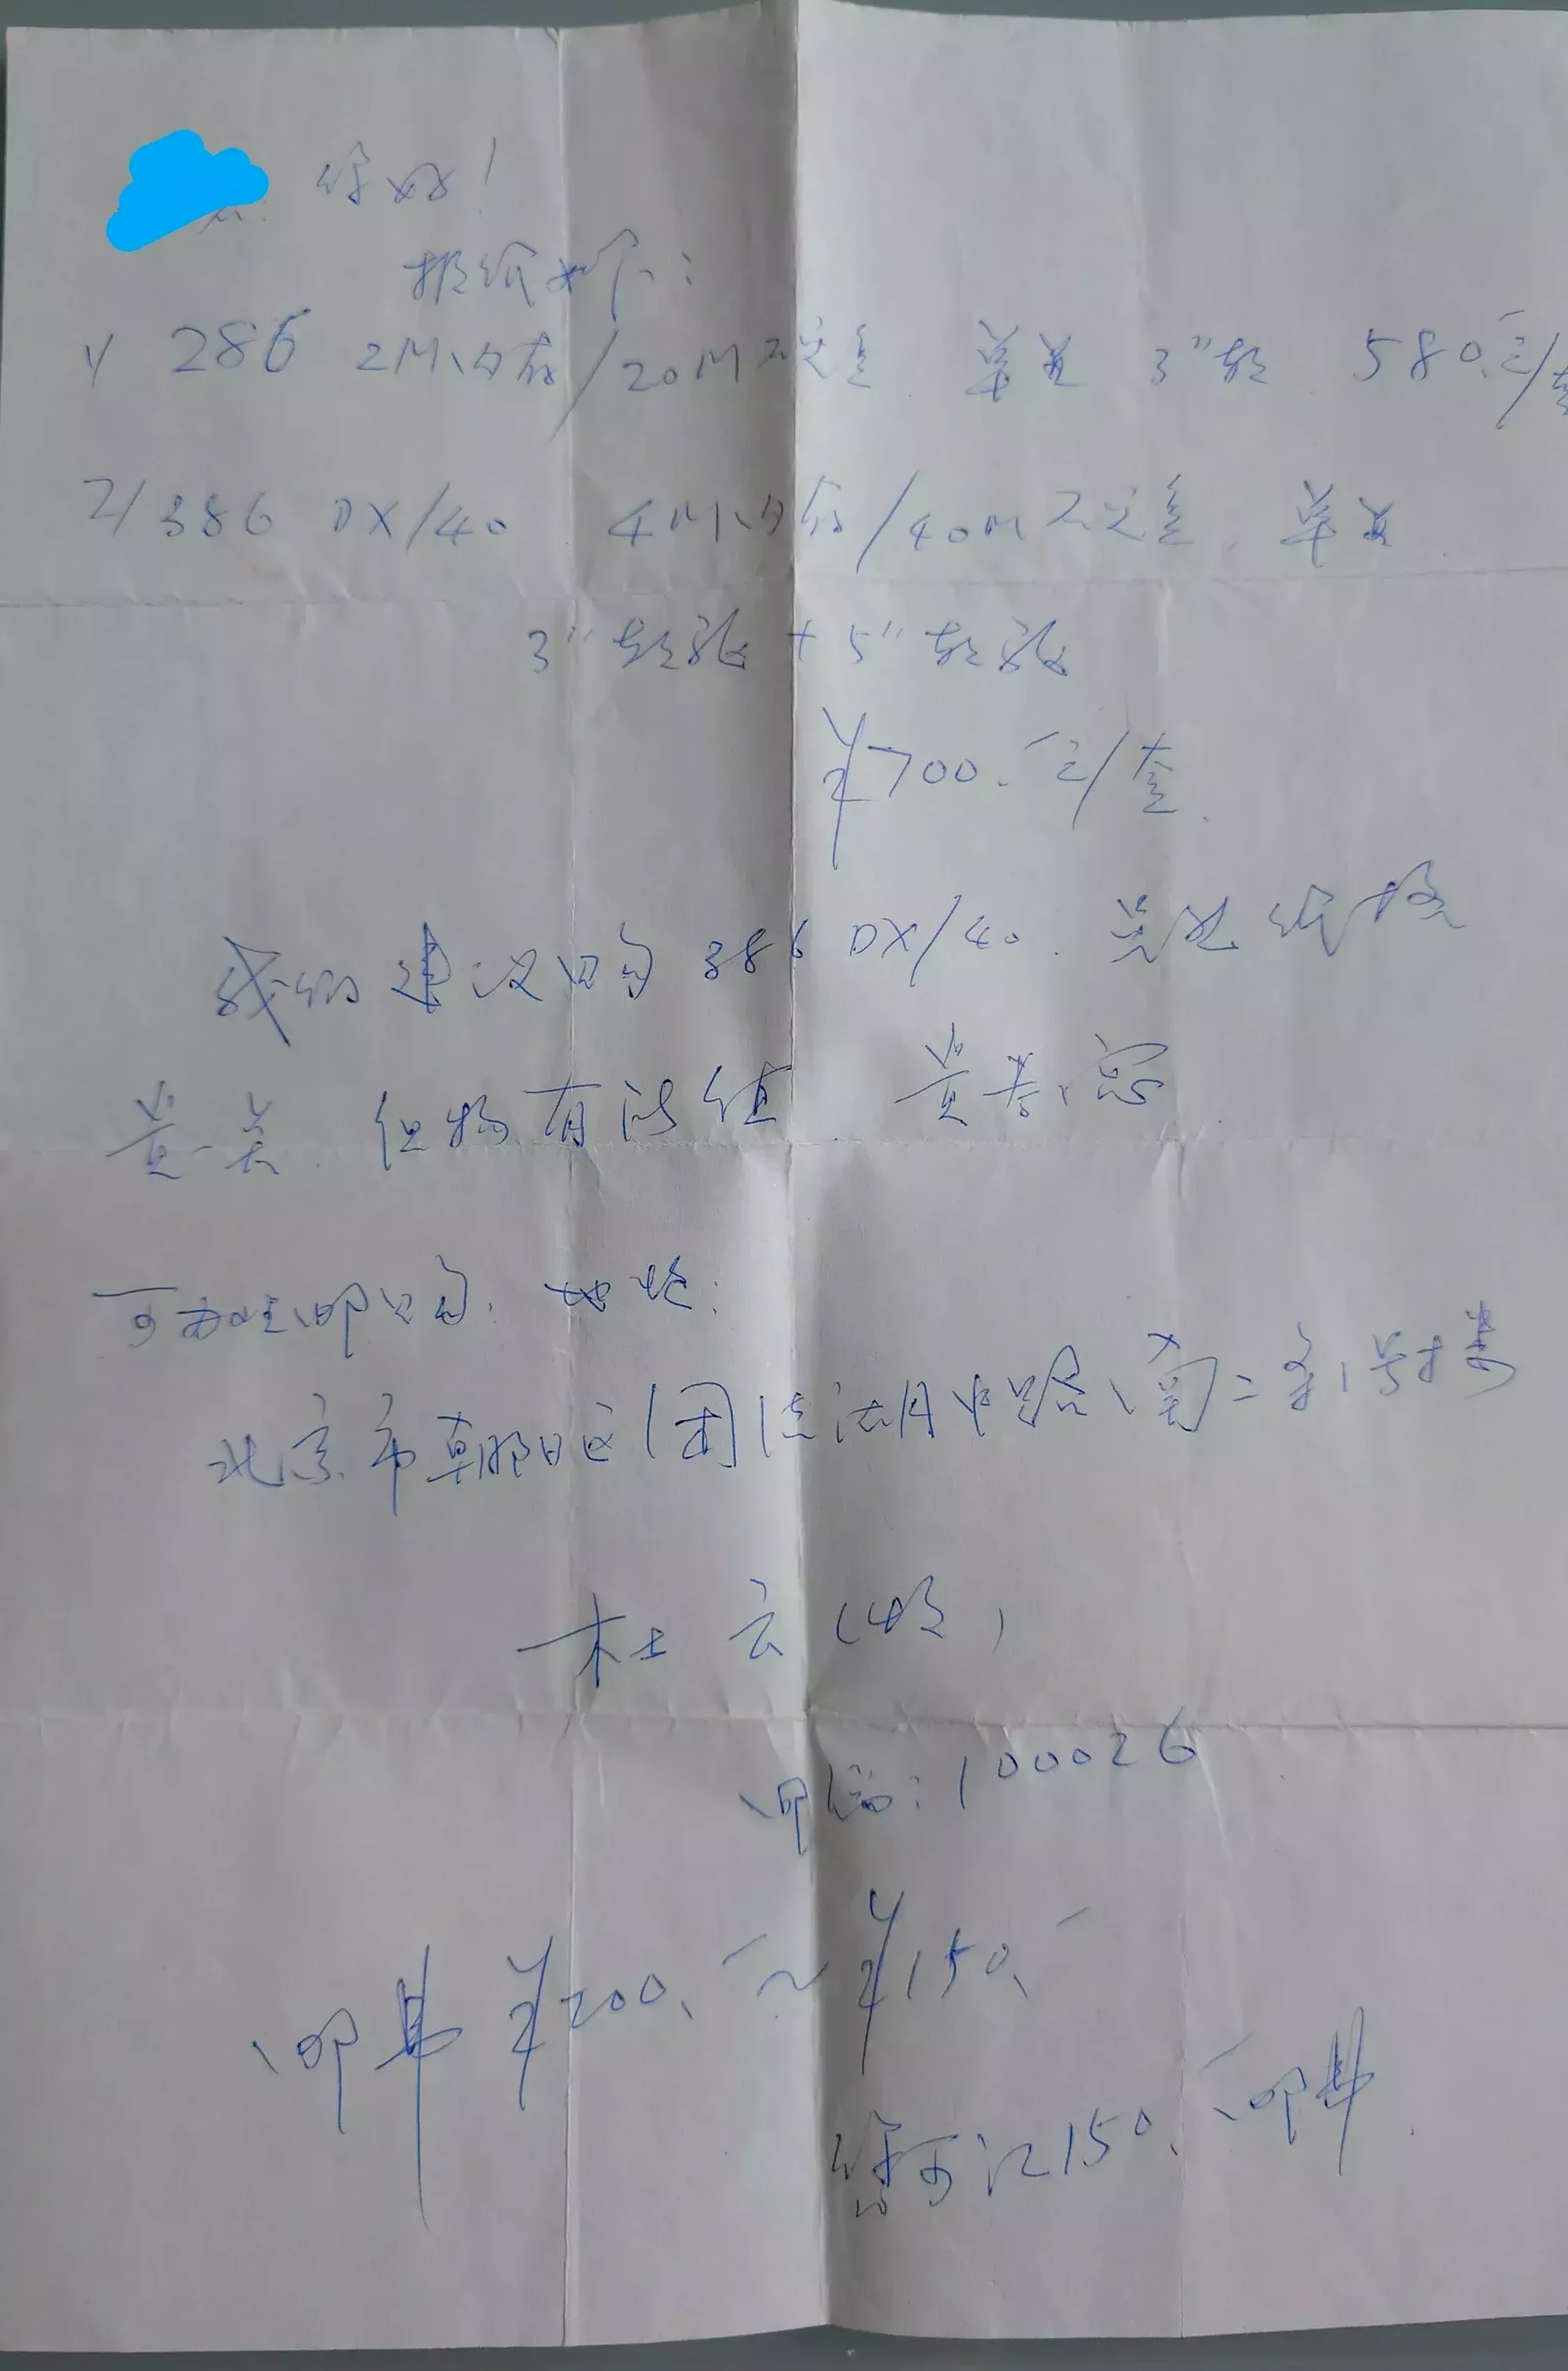 你好!
报价如下:
1/ 286 2M内存/20M硬盘 单显 3"软 580.-元/套
2/ 386 DX/40 4M内存/40M硬盘. 单显
3"软驱 + 5"软驱
¥700.-元/套.
我的建议购 386 DX/40. 虽然价格
贵一点. 但物有所值
可办理邮购. 地址:
北京市朝阳区(团结湖中路)南二条1号楼
杜云(收)
邮编: 100026
邮费 ¥200.- ~ ¥150.-
您可汇150.-邮费.